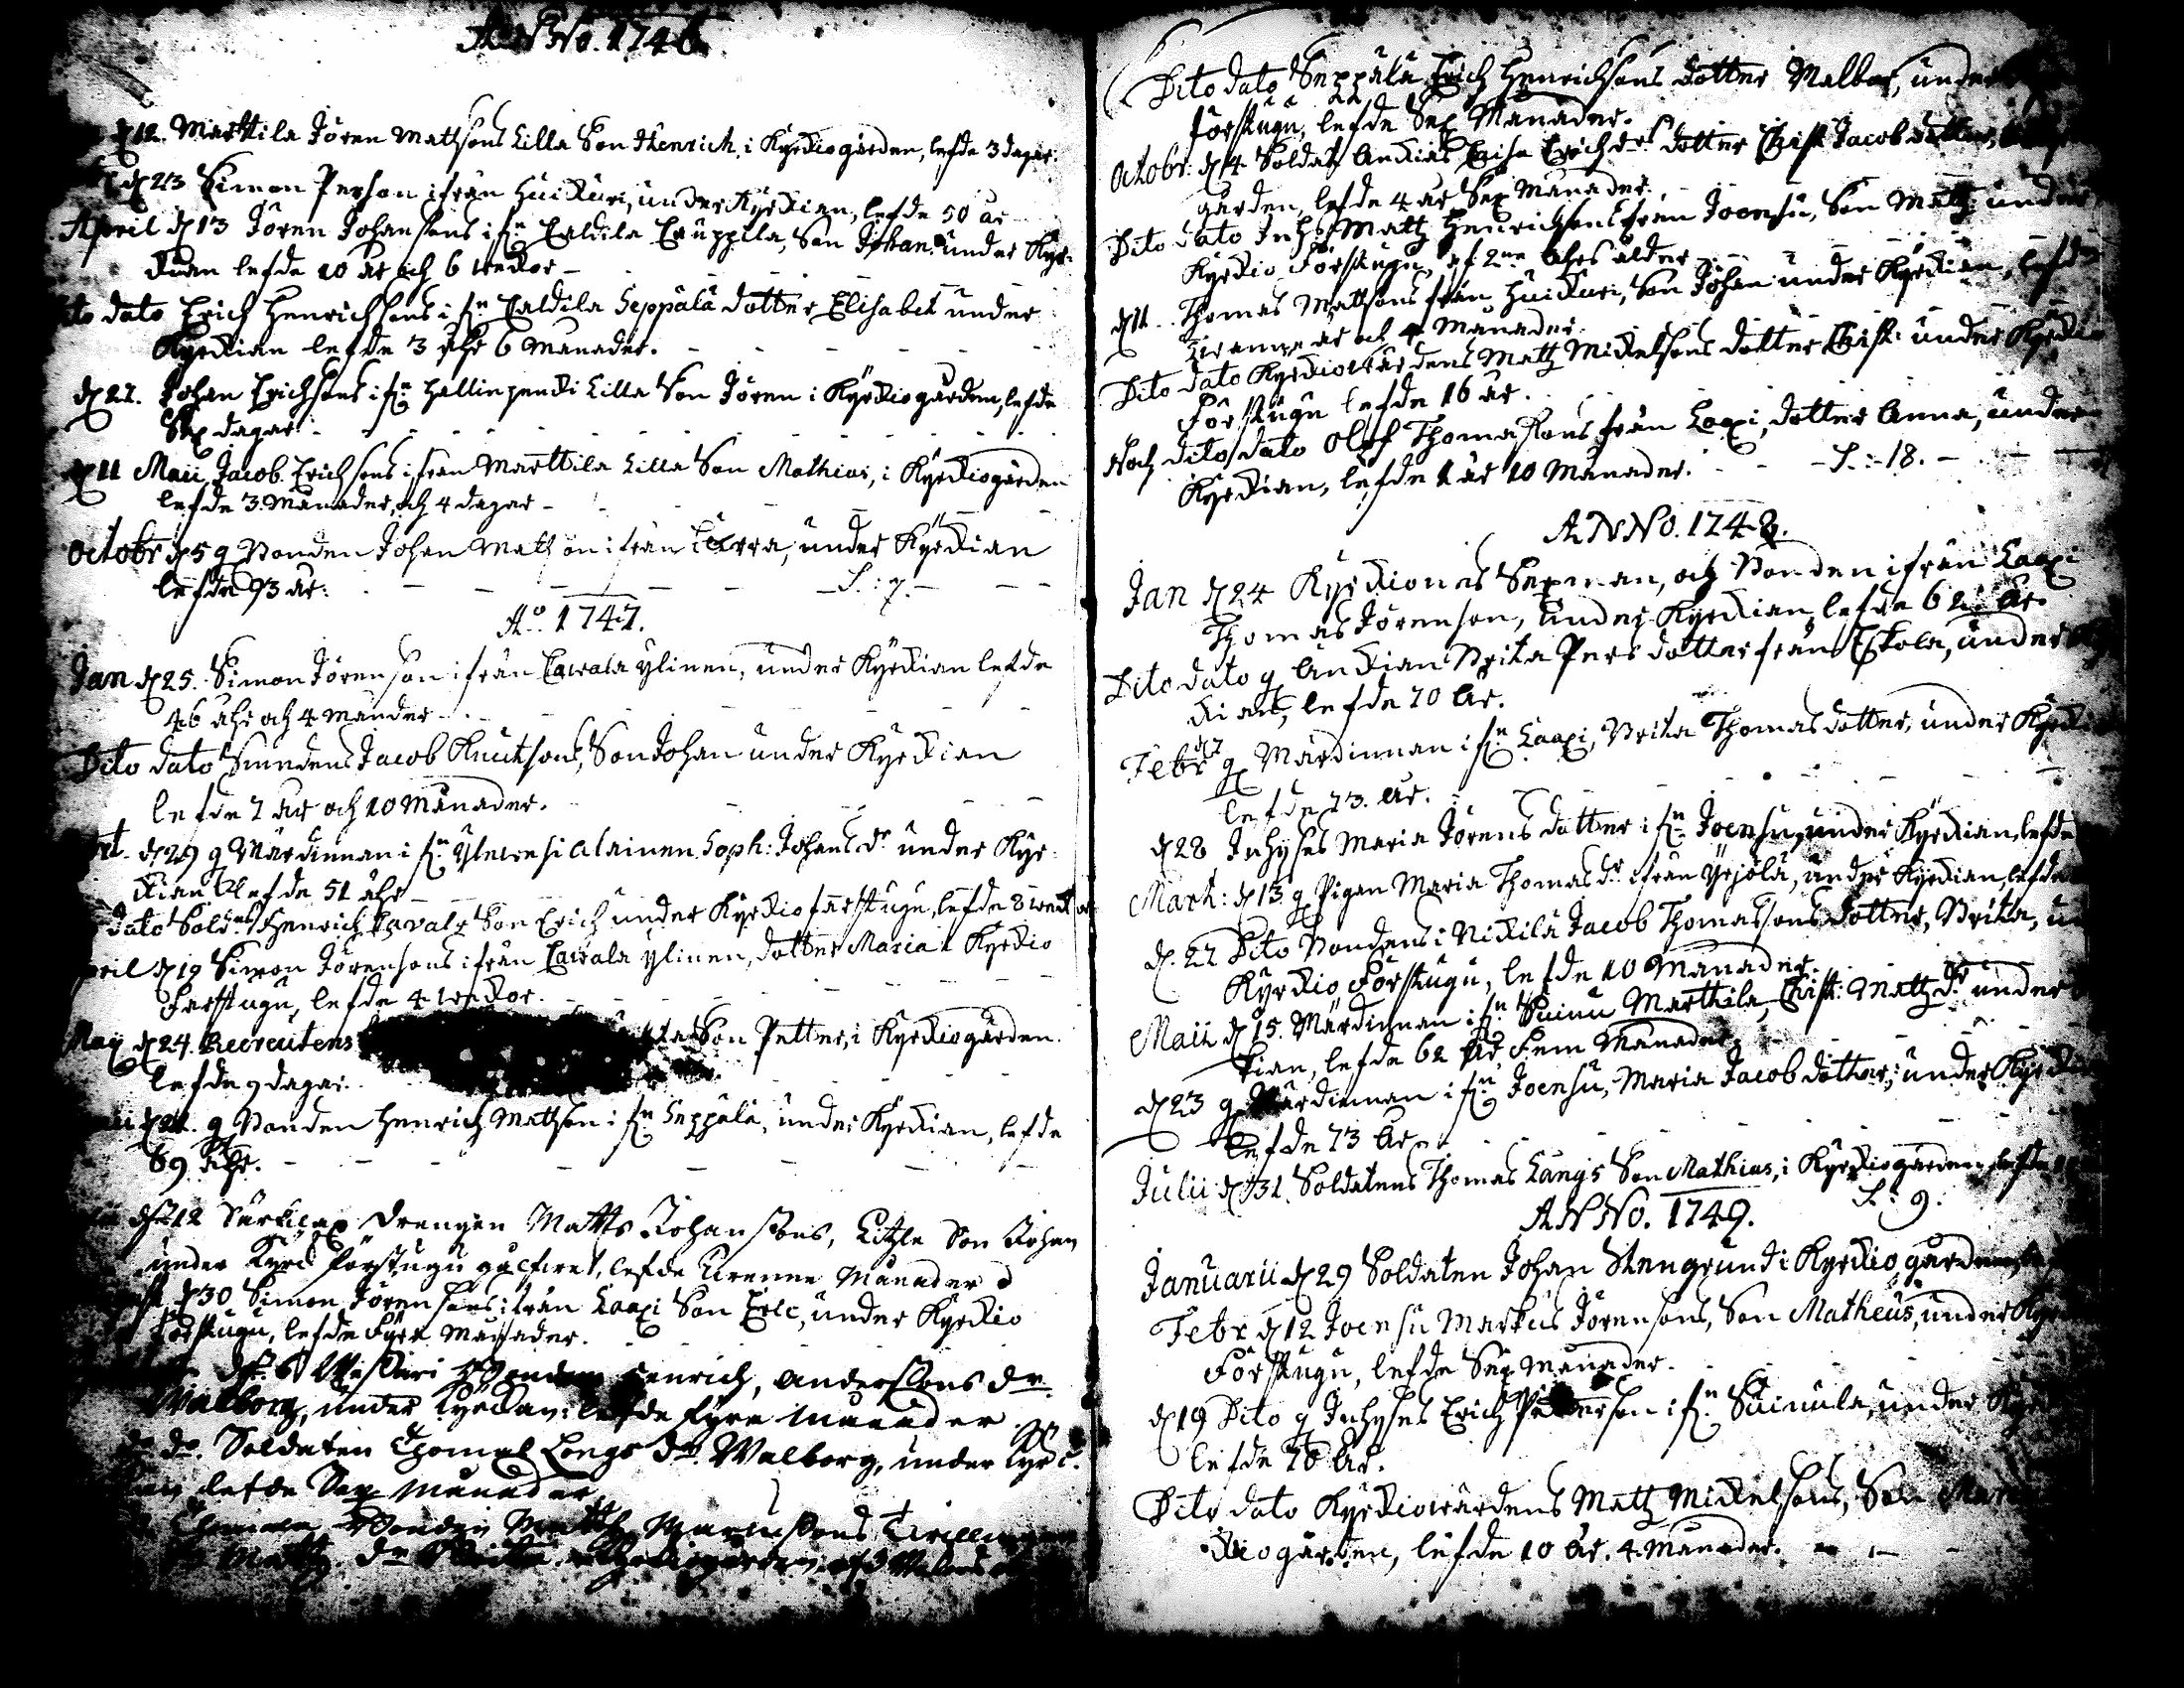 ANNo. 1746.
d 12. Marttila Jören Mathsons Lilla Son Henrich, i Kyrkiogården, lefde 3 dagar.
d 23 Simon Person ifrån Huikuri, under Kyrkian, lefde 50 år
April d 13 Jören Johansons i fn Caldila Cauppila, Son Johan under Kyr-
kian lefde 10 år och 6 wekor
dato Erich Henrichsons i fn Caldila Seppälä dotter Elisabet under
Kyrkian lefde 3 åhr 6 Månader.
d 27. Johan Erichsons i fn Hallinpendi Lilla Son Jören i Kyrkiogården, lefde
Sex dagar
d 11 Maii Jacob Erichsons ifrån Marttila Lilla Son Mathias, i Kyrkiogården
lefde 3 Månader, och 4 dagar
Octobr d 5 g Bonden Johan Mathson ifrån under Kyrkian
lefde 93 år. S: 7.
Ao. 1747.
Jan d 25. Simon Jörenson ifrån Caivala ylinen, under Kyrkian lefde
46 åhr och 4 Månder
Dito dato Smedens Jacob Knutsons, Son Johan under Kyrkian
lefde 7 år och 10 Månader.
d 29 g Värdinnan i fn Ylewesi alainen Soph: Johans dr under Kyr-
kian lefde 51 åhr
dato Soldns Henrich Son Erich under Kyrkio farstugu, lefde 8 weckor
April d 19 Simon Jörensons ifrån Caivala ylinen, dotter Maria Kyrkio
Farstugu, lefde 4 wekor.
May d 24. Recreutens Son Petter, i Kyrkiogården.
lefde 9 dagar.
d 21. g Bonden Henrich Mathson i fn Seppälä, under Kyrkian, lefde
69 åhr.
d 12 Särkilax drengen Matts Johanssons, Litzle Son Johan
under Kyrk förstugu gålfwet, lefde Twenne Månader
d 30 Simon Jörensons ifrån Laaxi Son Eric, under Kyrkio
Förstugu, lefde Fyra Månader.
d. 6 Bonden Henrich, Anderssons dr.
Walborg, under Kyrckan lefde Fyra Månader
do. Soldaten Thomas Longs dr. Walborg, under Kyrc-
kan lefde Sex Månader
Bonden Matth
Dito dato Seppälä Erich Henrichsons dotter Walbor, under
Förstugu, lefde Sex Månader.
Octobr: d 4 Soldat Erichdrs dotter Christ Jacob dotter,
gården, lefde 4 år Sex Månader.
Dito dato Inhs Matz Henrichsons från Joensu, Son Matz under
Kyrkio Förstugu, af 2ne åhrs ålder
d 11. Thomas Mathsons från Huikuri, Son Johan under Kyrkian, lefde
Twenne år och 4 Månader.
Dito dato Kyrkiowärdens Matz Mickelsons dotter Christ: under Kyrkio
Förstugu lefde 16 år.
Noch dito dato Olof Thomassons från Laaxi, dotter Anna, under
Kyrkian, lefde 1 år 10 Månader. S:18.
ANNo. 1748.
Jan d 24 Kyrkiones Sexman, och Bonden ifrån Laaxi
Thomas Jörenson, under Kyrkian, lefde 62 år.
Dito dato g Enkian Brita Pers dotter från Eskola, under
kian, lefde 70 år.
Febr d 7 g Värdinnan i fn Laaxi, Brita Thomas dotter, under Kyrki
lefde 73. år.
d 28 Inhyses Maria Jörens dotter i fn Joensu, under Kyrkian, lefde
Mart: d 13 g Pigan Maria Thomas dr ifrån Yrjölä, under Kyrkian, lefde
d. 22 Dito Bondens i Nickilä Jacob Thomassons dotter, Brita,
Kyrkio Förstugu, lefde 10 Månader.
Maii d 15. Värdinnan i fn Suinu Marttila, Christ: Matz dr under
kian, lefde 62 år Fem Månader
d 23 g Värdinnan i fn Joensu, Maria Jacob dotter, under Kyrki
lefde 73 år
Julii d 31. Soldatens Thomas Långs Son Mathias, i Kyrkiogården lefde
S: 9.
ANNo. 1749.
Januarii d 29 Soldaten Johan Stengrund i Kyrkiogården,
Febr d 12 Joensu Markus Jörensons, Son Matheus, under Kyr
Förstugu, lefde Sex Månader.
d 19 Dito g Inhyses Erich Petterson i fn Suinula, under Kyr
lefde 70 år.
Dito dato Kyrkiowärdens Matz Mickelsons, Son
kiogården, lefde 10 år. 4. Månader.